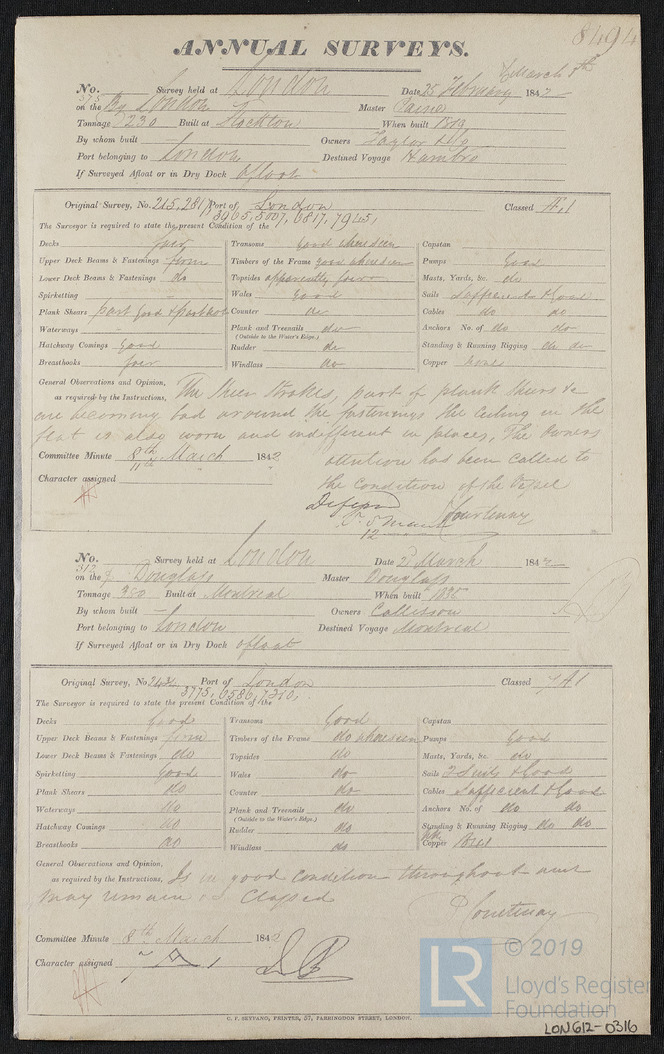 8494
ANNUAL SURVEYS.
No. 575 Survey held at London Date 25 February & March 8th 1842
on the By London Master Paine
Tonnage 230 Built at Stockton When built 1819
By whom built — Owners Taylor & Co
Port belonging to London Destined Voyage Hambro
If Surveyed Afloat or in Dry Dock afloat
Original Survey, No. 215, 2817, Port of London Classed Æ.1
3965, 5007, 6817, 7945,
The Surveyor is required to state the present Condition of the
Decks fair Transoms Good where seen Capstan
Upper Deck Beams & Fastenings firm Timbers of the Frame good where seen Pumps Good
Lower Deck Beams & Fastenings do Topsides apparently fair Masts, Yards, &c. do
Spirketting — Wales Good Sails Sufficient & Good
Plank Shears part good & part bad Counter do Cables do do
Waterways — Plank and Treenails do Anchors No. of do do
(Outside to the Water's Edge.)
Hatchway Comings Good Rudder do Standing & Running Rigging do do
Breasthooks fair Windlass do Copper none
General Observations and Opinion, The Sheer Strakes, part of plank Shears &c
as required by the Instructions,
are becoming bad around the fastenings the Ceiling in the
flat is also worn and indifferent in places, The Owners
Committee Minute 8th March 1842 attention has been called to
11th
Character assigned the condition of the Vessel
Courtenay
12
No. 313 Survey held at London Date 2 March 1842
on the Douglass Master Douglass
Tonnage 380 Built at Montreal When built 1836
By whom built — Owners Collisson
Port belonging to London Destined Voyage Montreal
If Surveyed Afloat or in Dry Dock afloat
Original Survey, No. Port of London Classed 7 A1
3775, 6586, 7310,
The Surveyor is required to state the present Condition of the
Decks Good Transoms Good Capstan
Upper Deck Beams & Fastenings firm Timbers of the Frame do where seen Pumps Good
Lower Deck Beams & Fastenings do Topsides do Masts, Yards, &c. do
Spirketting Good Wales do Sails 2 Suits & Good
Plank Shears do Counter do Cables Sufficient & Good
Waterways do Plank and Treenails do Anchors No. of do do
(Outside to the Water's Edge.)
Hatchway Comings do Rudder do Standing & Running Rigging do do
Breasthooks do Windlass do Copper
General Observations and Opinion,
as required by the Instructions, Is in good condition throughout and
may remain as Classed
Courtenay
Committee Minute 8th March 1842
Character assigned 7 A 1
C. F. SEYFANG, PRINTER, 57, FARRINGDON STREET, LONDON.
LR
© 2019
Lloyd's Register
Foundation
LON612-0316